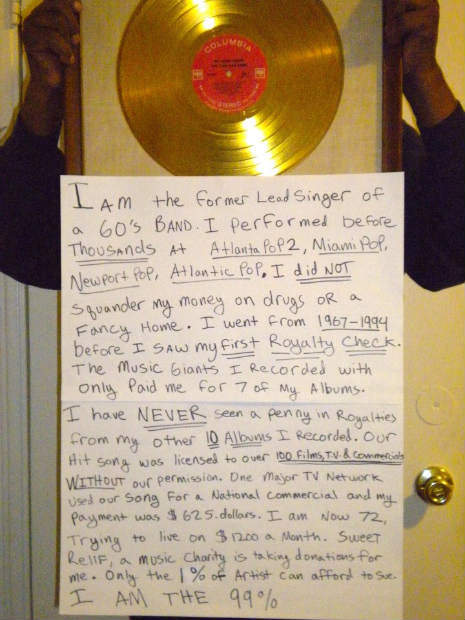 COLUMBIA
STEREO
I AM the former Lead Singer of
a 60's BAND. I performed before
Thousands At Atlanta Pop 2, Miami Pop,
Newport Pop, Atlantic Pop. I did NOT
squander my money on drugs or a
Fancy Home. I went from 1967-1994
before I saw my first Royalty Check.
The Music Giants I Recorded with
only paid me for 7 of my Albums.
I have NEVER seen a penny in Royalties
from my other 10 Albums I Recorded. Our
Hit song was licensed to over 100 Films, T.V. & Commercials
WITHOUT our permission. One Major TV Network
used our song for a National commercial and my
payment was $ 625. dollars. I am Now 72,
Trying to live on $ 1200 a Month. SWEET
Relief, a music charity is taking donations for
me. Only the 1% of Artist can afford to Sue.
I AM THE 99%